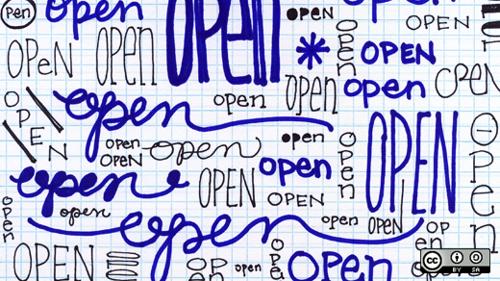 Pen
open
open
OPEN
open
OPEN
open
OPEN
OPeN
open
open
open
OPEN
open
open
OPEN
open
open
OPEN
open
OPEN
OPEN
open
open
open
OPEN
open
OPEN
OPEN
open
open
open
open
OPEN
OPEN
open
open
OPEN
cc
BY SA